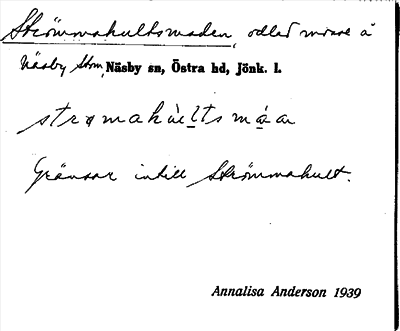 Strömmakultsmaden, odlad mosse å
Näsby Stom, Näsby sn, Östra hd, Jönk. l.
strømakùl̲tsmá̲ar
Gränsar intill Strömmakult.
Annalisa Anderson 1939